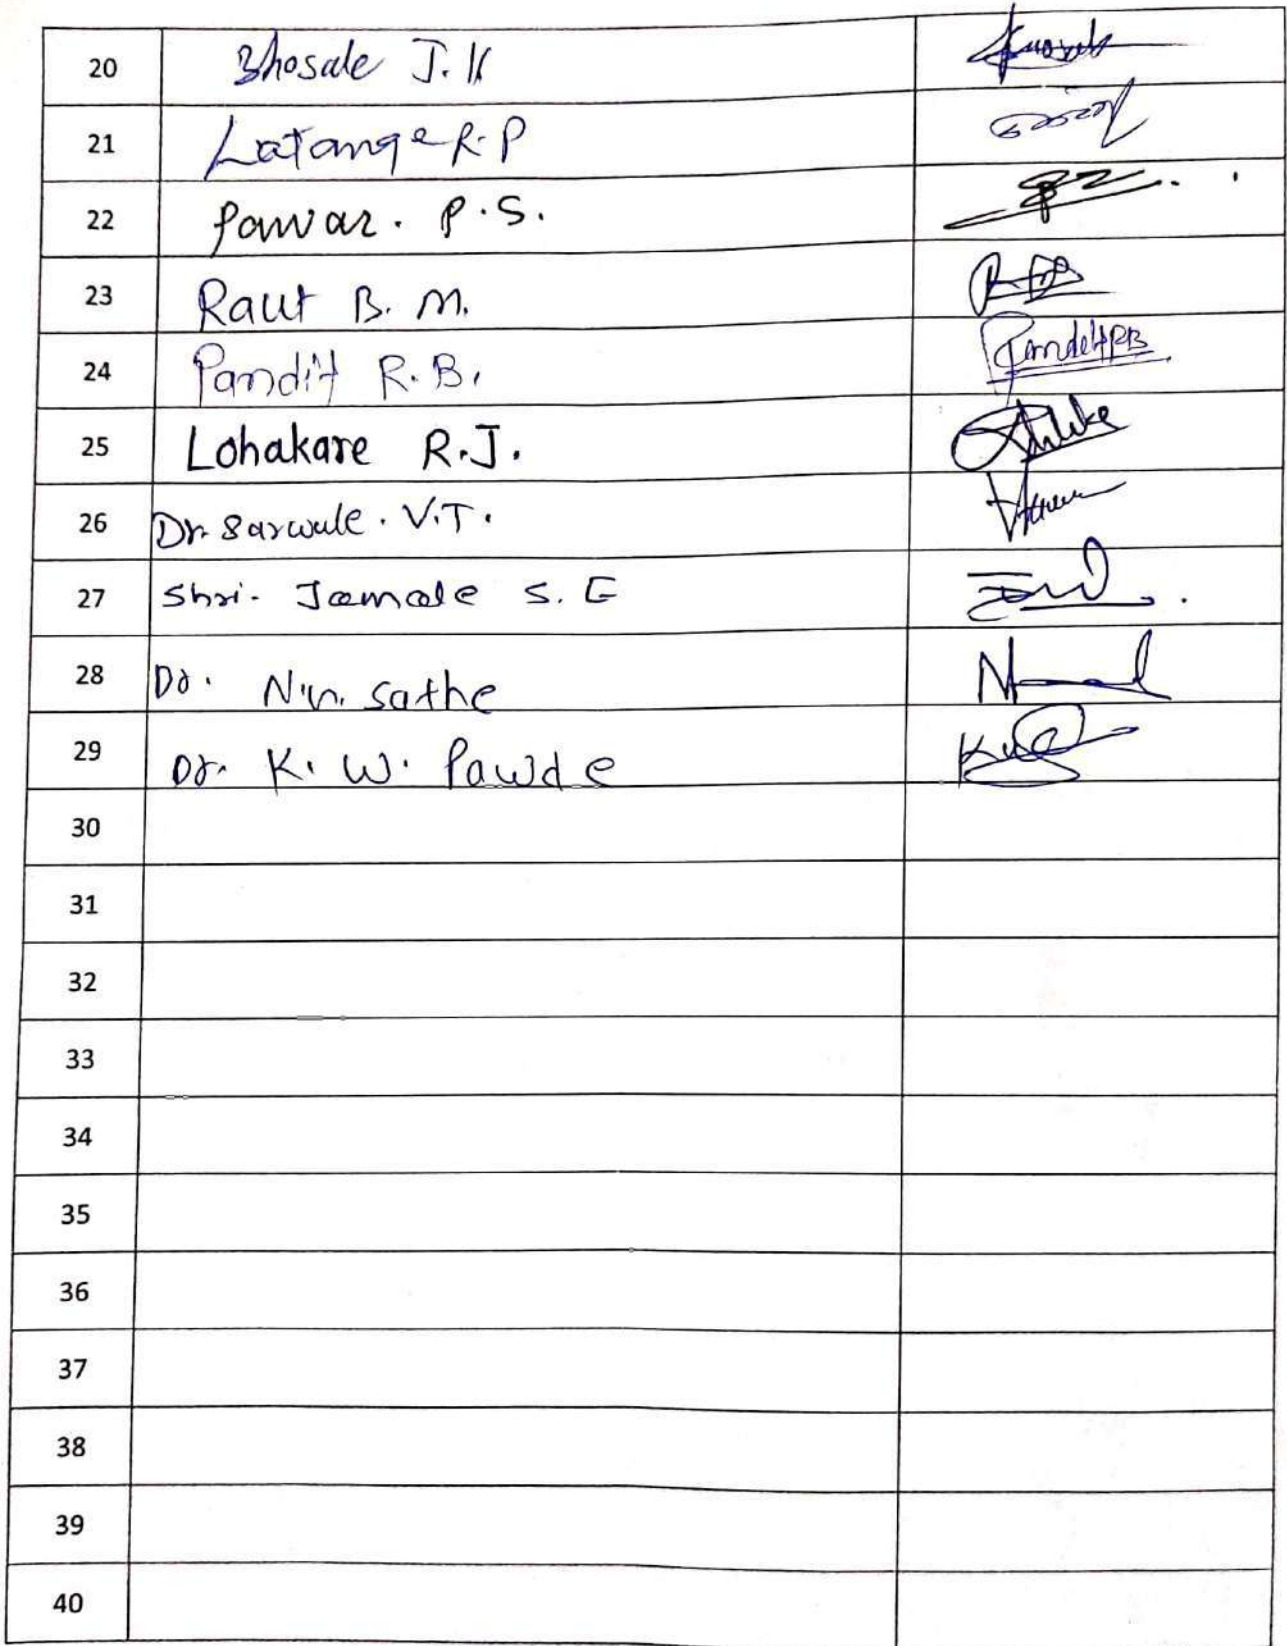 20 Bhosale J.K
21 Latange R.P
22 Pawar. P.S.
23 Raut B. M.
24 Pandit R.B. Pandit RB
25 Lohakare R.J.
26 Dr. Sarwale. V.T.
27 Shri. Jamale S. G
28 Dr. N.N. Sathe
29 Dr. K. W. Pawde
30
31
32
33
34
35
36
37
38
39
40